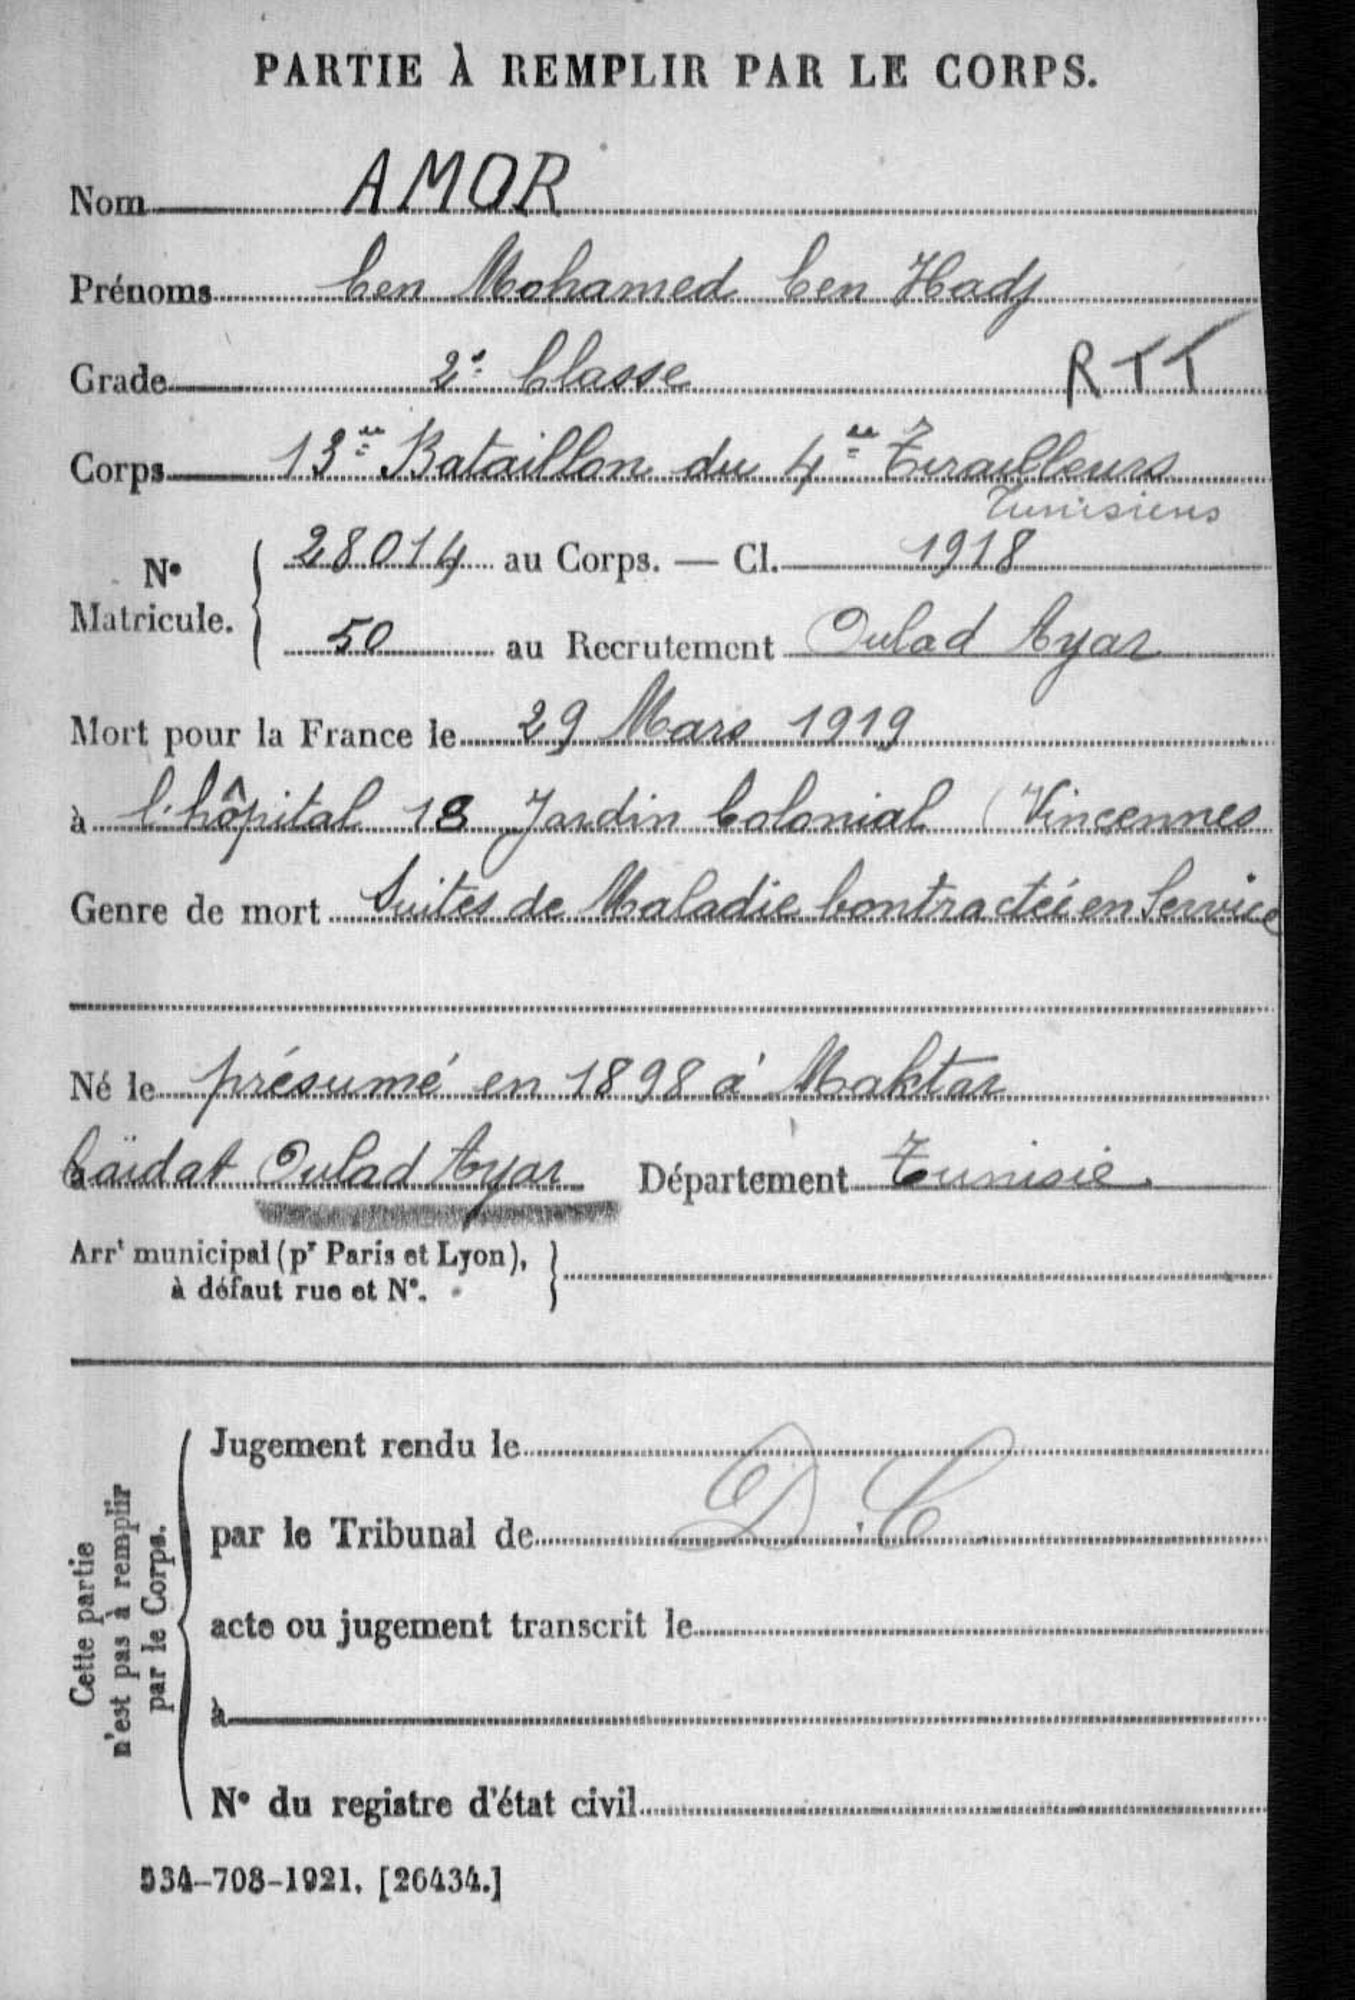 PARTIE À REMPLIR PAR LE CORPS.
Nom AMOR
Prénoms ben Mohamed ben Hadj
Grade 2e Classe RTT
Corps 13me Bataillon du 4me Tirailleurs
Tunisiens
N° Matricule. 28014 au Corps. — Cl. 1918
50 au Recrutement Oulad Ayar
Mort pour la France le 29 Mars 1919
à l'hôpital 18 Jardin Colonial (Vincennes
Genre de mort Suites de Maladie Contractée en Service
Né le présumé en 1898 à Maktar
à Caïdat Oulad Ayar Département Tunisie.
Arrt municipal (pr Paris et Lyon),
à défaut rue et N°.
Cette partie
n'est pas à remplir
par le Corps.
Jugement rendu le
D.C
par le Tribunal de
acte ou jugement transcrit le
à
N° du registre d'état civil
534-708-1921. [26434.]